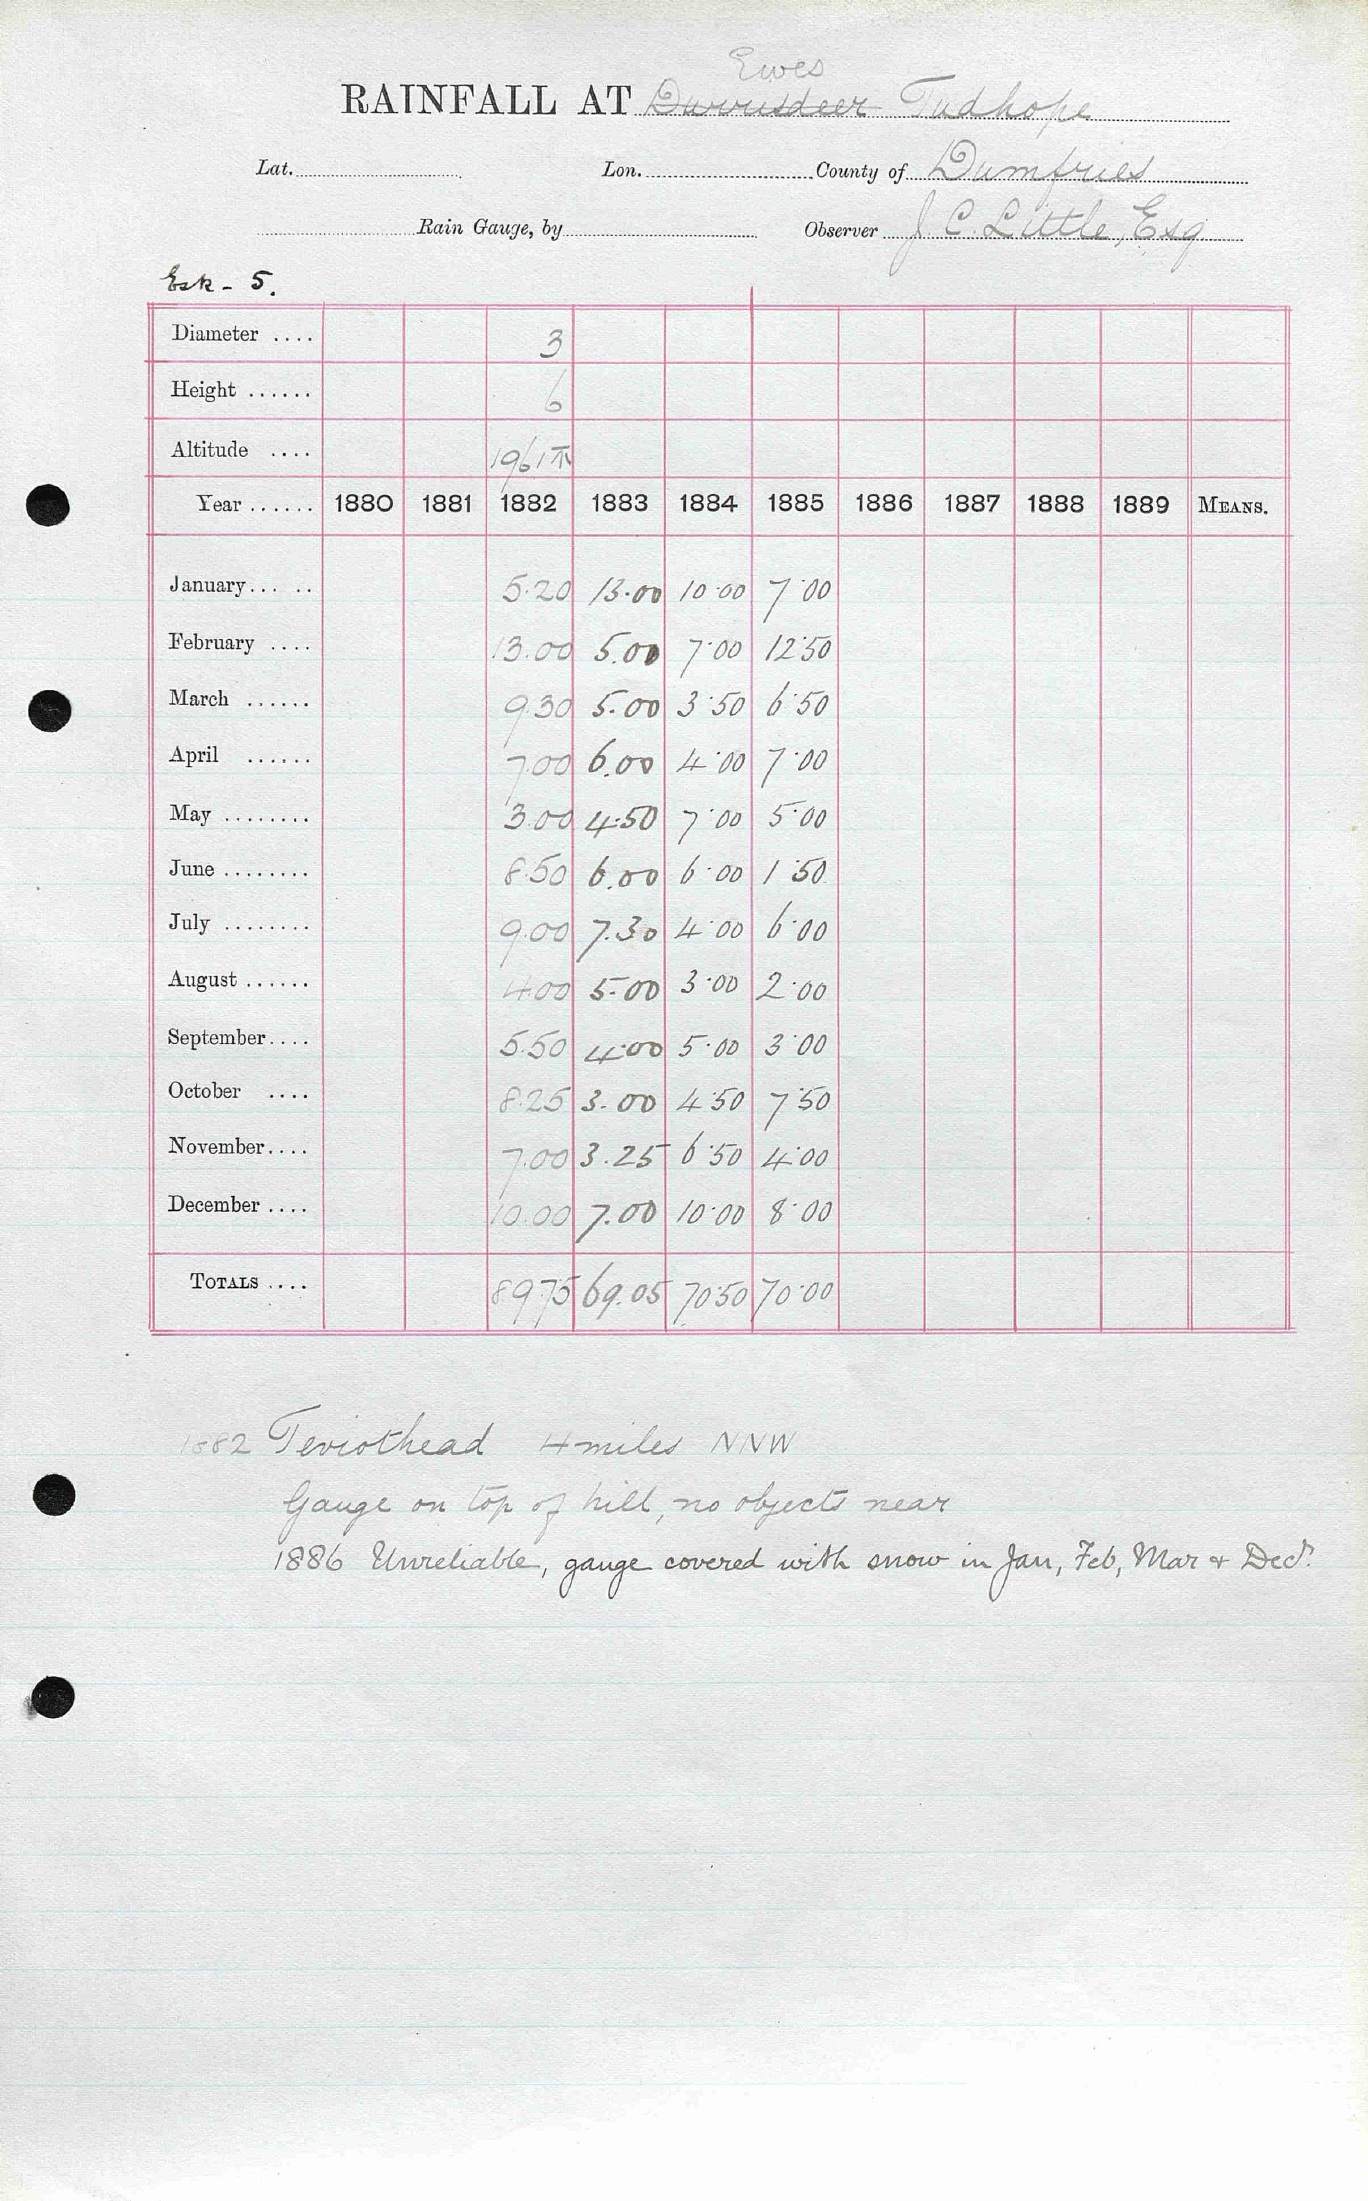 Ewes
RAINFALL AT Durrusdeer Tudhope
Lat. Lon. County of Dumfries
Rain Gauge, by Observer J. C. Little, Esq
Esk - 5.
Diameter .... 3
Height ...... 6
Altitude .... 1961
Year ...... 1880 1881 1882 1883 1884 1885 1886 1887 1888 1889 MEANS.
January... .. 5.20 13.00 10.00 7.00
February .... 13.00 5.00 7.00 12.50
March ...... 9.30 5.00 3.50 6.50
April ...... 7.00 6.00 4.00 7.00
May ........ 3.00 4.50 7.00 5.00
June ........ 8.50 6.00 6.00 1.50
July ........ 9.00 7.30 4.00 6.00
August ...... 4.00 5.00 3.00 2.00
September.... 5.50 4.00 5.00 3.00
October .... 8.25 3.00 4.50 7.50
November.... 7.00 3.25 6.50 4.00
December .... 10.00 7.00 10.00 8.00
TOTALS .... 89.75 69.05 70.50 70.00
1882 Teviothead 4 miles NNW
Gauge on top of hill, no objects near
1886 Unreliable, gauge covered with snow in Jan, Feb, Mar & Decr.